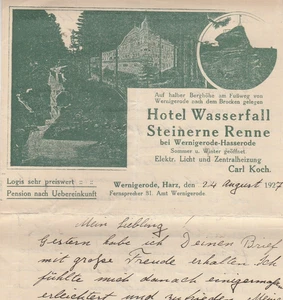 Auf halber Berghöhe am Fußweg von
Wernigerode nach dem Brocken gelegen
Hotel Wasserfall
Steinerne Renne
bei Wernigerode-Hasserode
Sommer u. Winter geöffnet
Elektr. Licht und Zentralheizung
Carl Koch.
Logis sehr preiswert
Pension nach Uebereinkunft
Wernigerode, Harz, den 24 August 1927
Fernsprecher 81. Amt Wernigerode.
Mein Liebling!
Gestern habe ich Deinen Brief
mit großer Freude erhalten. Ich
fühlte mich danach einigermaßen
erleichtert und zufrieden.